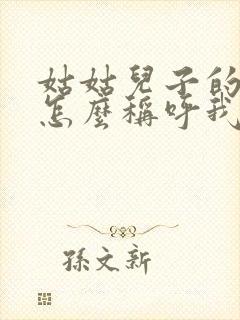 姑姑兒子的
怎麼稱呼我
孫文新